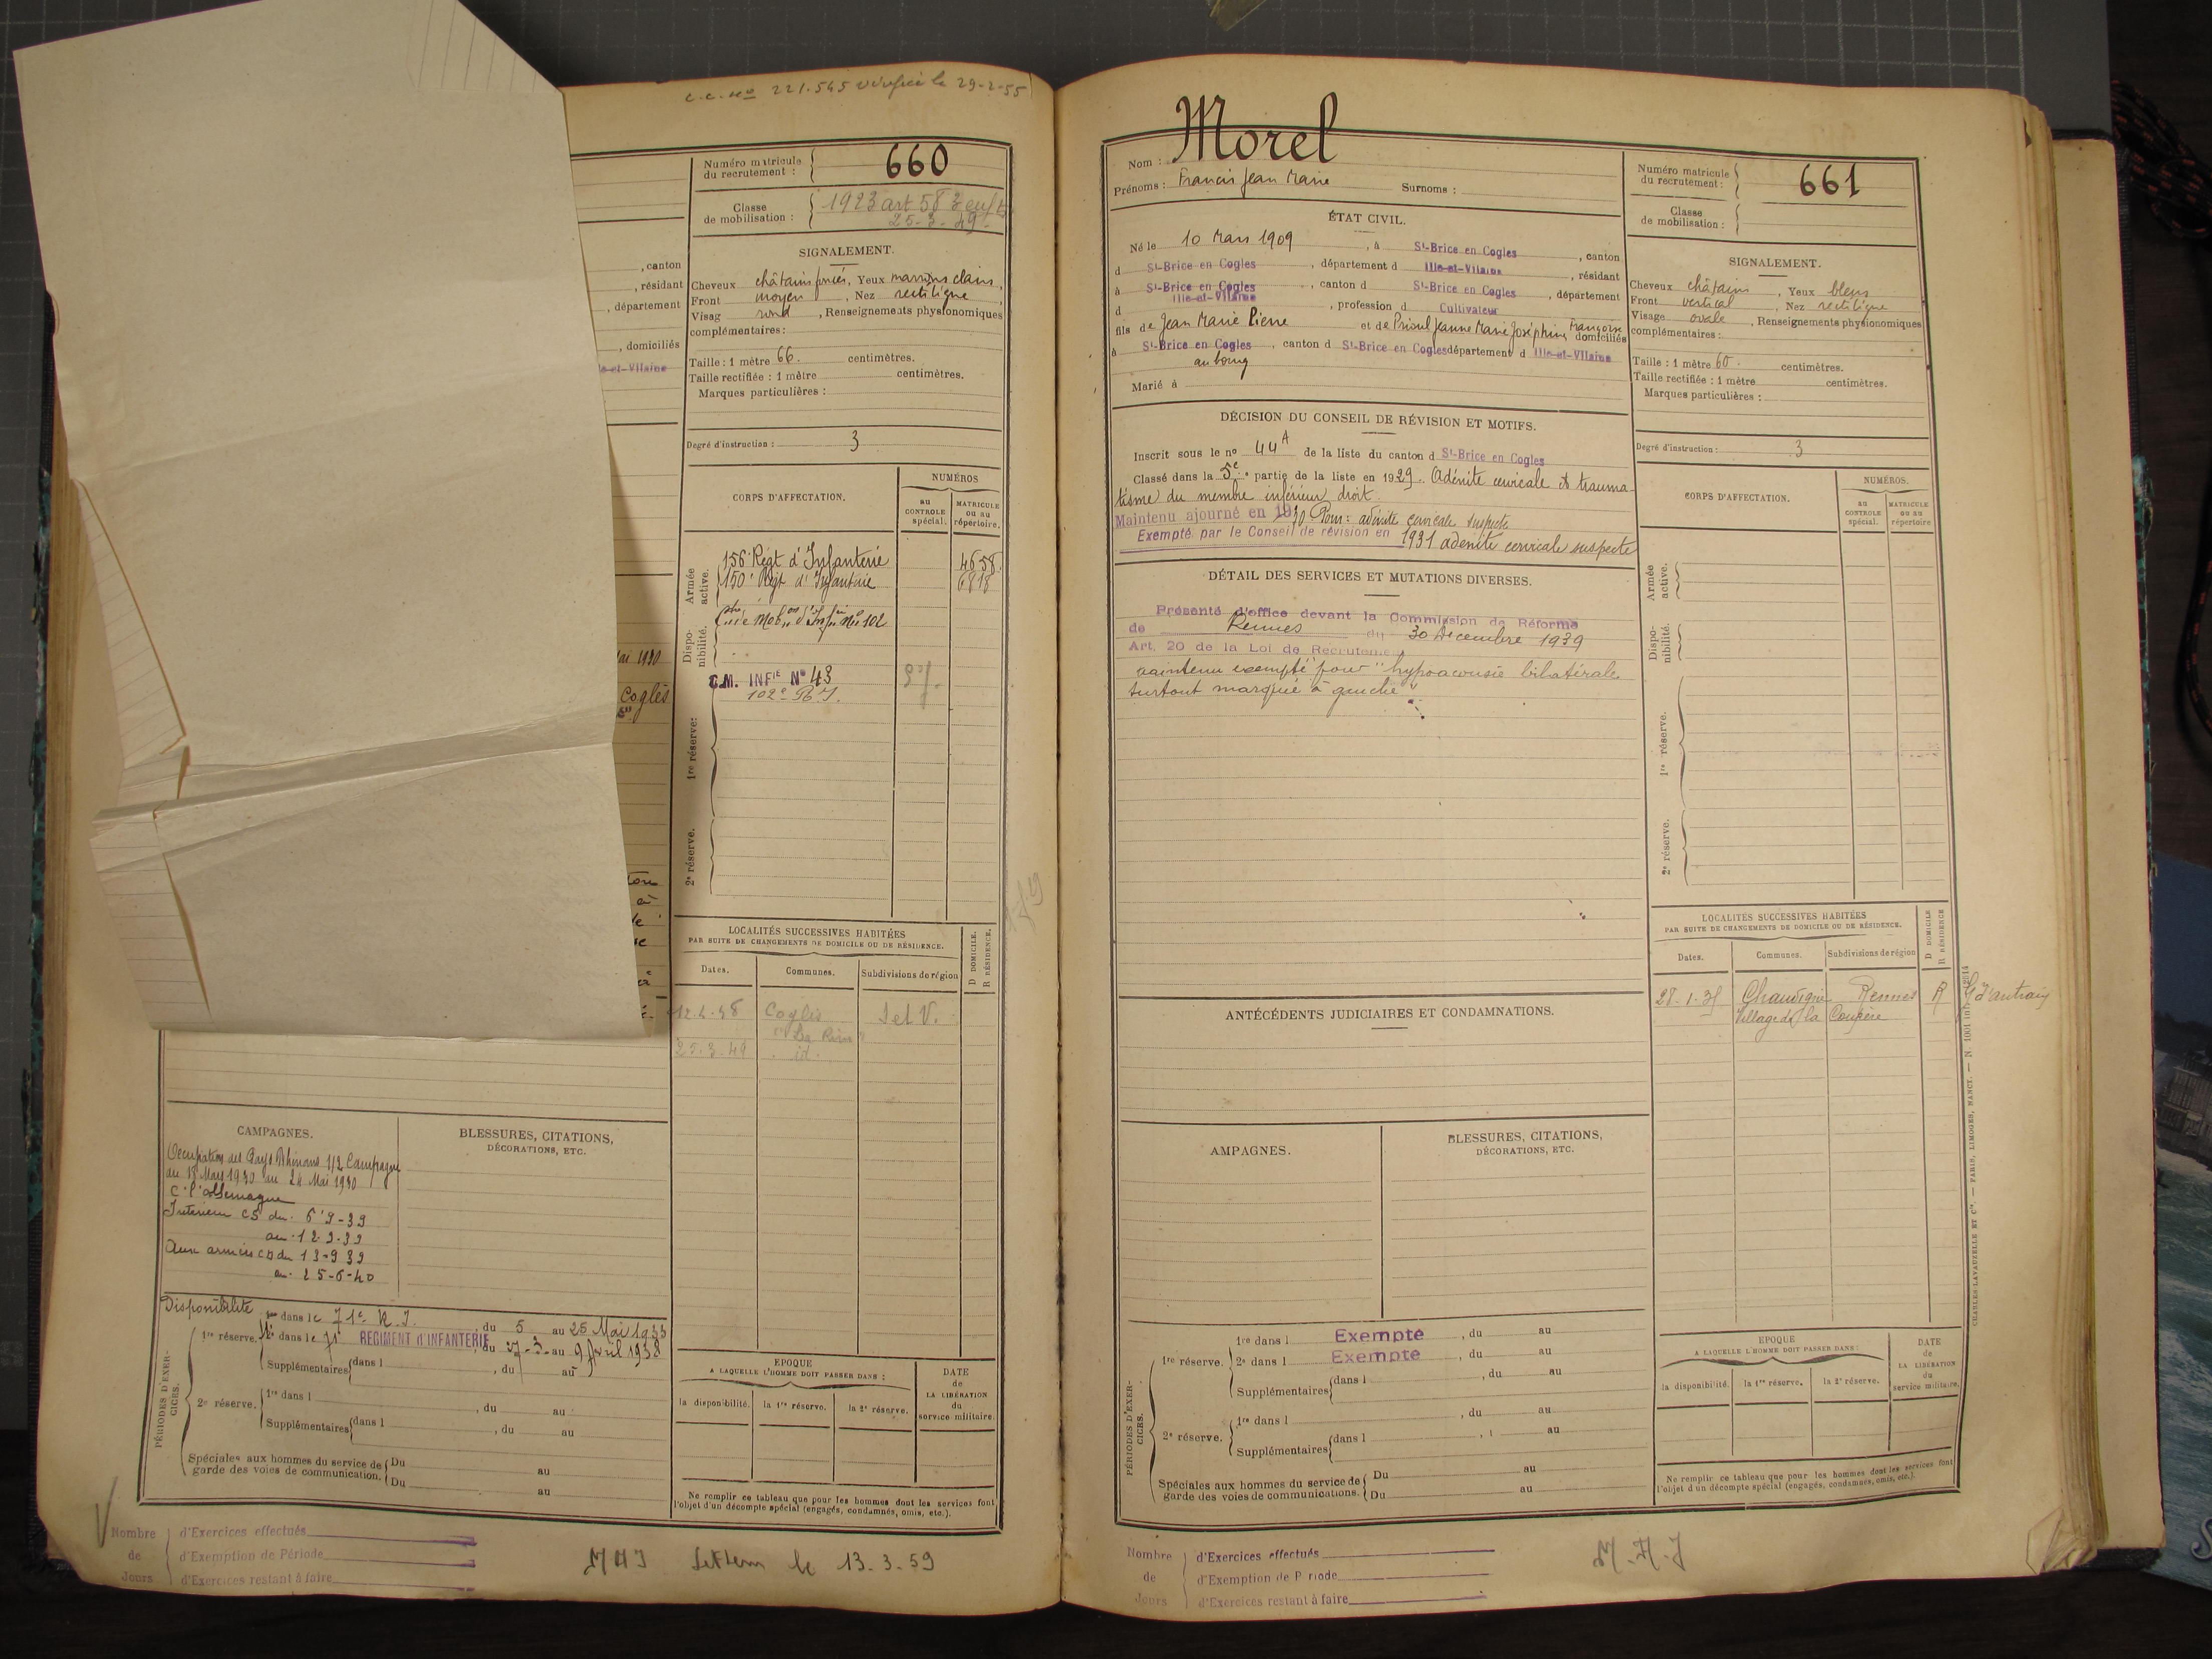 c.c. no 221.545 vérifié le 29-2-55
Numéro matricule du recrutement : 660
Classe de mobilisation : 1923 art 58
25-3-49
, canton
, résidant
, département
, domiciliés
Ille-et-Vilaine
SIGNALEMENT.
Cheveux châtains foncés, Yeux marrons clairs,
Front moyen, Nez rectiligne,
Visag rond, Renseignements physionomiques
complémentaires :
Taille : 1 mètre 66. centimètres.
Taille rectifiée : 1 mètre centimètres.
Marques particulières :
Degré d'instruction : 3
CORPS D'AFFECTATION.
NUMÉROS
au CONTROLE spécial.
MATRICULE ou au répertoire.
Armée active.
156e Régt d'Infanterie 4658
150e Régt d'Infanterie 6818
Disponibilité.
C.M. INFIE No 43
102e R.I.
1re réserve:
2e réserve.
Mai 1930
Coglès
LOCALITÉS SUCCESSIVES HABITÉES
PAR SUITE DE CHANGEMENTS DE DOMICILE OU DE RÉSIDENCE.
Dates. Communes. Subdivisions de région
D DOMICILE.
R RÉSIDENCE.
12.4.48 Coglès I et V.
25.3.49 id.
CAMPAGNES.
Occupation des Pays Rhénans 1/2 Campagne
du 18 Mars 1930 au 24 Mai 1930
C. l'Allemagne
Intérieur CS du. 6-9-39
au. 12-9-39
Aux armées CD du 13-9-39
au. 25-6-40
BLESSURES, CITATIONS,
DÉCORATIONS, ETC.
Disponibilité
PÉRIODES D'EXERCICES.
1re dans le 71e R.I. du 5 au 25 Mai 1933
1re réserve. 2e dans le 71e REGIMENT d'INFANTERIE, du 27-3- au 9 Avril 1938
Supplémentaires dans l , du au
2e réserve. 1re dans l , du au
Supplémentaires dans l , du au
Spéciales aux hommes du service de garde des voies de communication. Du au
Du au
EPOQUE
A LAQUELLE L'HOMME DOIT PASSER DANS :
la disponibilité. la 1re réserve. la 2e réserve.
DATE de LA LIBÉRATION du service militaire.
Ne remplir ce tableau que pour les hommes dont les services font
l'objet d'un décompte spécial (engagés, condamnés, omis, etc.).
Nombre de Jours
d'Exercices effectués
d'Exemption de Période
d'Exercices restant à faire
le 13.3.59
Nom : Morel
Prénoms : Francis Jean Marie Surnoms :
Numéro matricule du recrutement : 661
Classe de mobilisation :
ÉTAT CIVIL.
Né le 10 Mars 1909, à St-Brice en Cogles, canton
d St-Brice en Cogles, département d Ille-et-Vilaine, résidant
à St-Brice en Cogles, canton d St-Brice en Cogles, département
d Ille-et-Vilaine, profession d Cultivateur
fils de Jean Marie Pierre et de Prioul Jeanne Marie Joséphine Françoise domiciliés
à St-Brice en Cogles, canton d St-Brice en Cogles département d Ille-et-Vilaine
au bourg
Marié à
SIGNALEMENT.
Cheveux châtains, Yeux bleus
Front vertical, Nez rectiligne
Visage ovale, Renseignements physionomiques
complémentaires :
Taille : 1 mètre 60. centimètres.
Taille rectifiée : 1 mètre centimètres.
Marques particulières :
Degré d'instruction : 3
DÉCISION DU CONSEIL DE RÉVISION ET MOTIFS.
Inscrit sous le no 44 A de la liste du canton d St-Brice en Cogles
Classé dans la 5e partie de la liste en 1929. Adénite cervicale et trauma-
tisme du membre inférieur droit
Maintenu ajourné en 1930 Pour : adénite cervicale suspecte
Exempté par le Conseil de révision en 1931 adénite cervicale suspecte
DÉTAIL DES SERVICES ET MUTATIONS DIVERSES.
Présenté d'office devant la Commission de Réforme
de Rennes du 30 Décembre 1939
Art. 20 de la Loi de Recrutement
maintenu exempté pour "hypoacousie bilatérale
surtout marquée à gauche"
CORPS D'AFFECTATION.
NUMÉROS.
au CONTROLE spécial.
MATRICULE ou au répertoire
Armée active.
Disponibilité.
1re réserve.
2e réserve.
ANTÉCÉDENTS JUDICIAIRES ET CONDAMNATIONS.
LOCALITÉS SUCCESSIVES HABITÉES
PAR SUITE DE CHANGEMENTS DE DOMICILE OU DE RÉSIDENCE.
Dates. Communes. Subdivisions de région
D DOMICILE
R RÉSIDENCE
28-1-35 Chauvigné Rennes R d'Antrain
Village de la
AMPAGNES.
BLESSURES, CITATIONS,
DÉCORATIONS, ETC.
PÉRIODES D'EXERCICES.
1re réserve. 1re dans l Exempté, du au
2e dans l Exempté, du au
Supplémentaires dans l , du au
2e réserve. 1re dans l , du au
Supplémentaires dans l , au
Spéciales aux hommes du service de garde des voies de communications. Du au
Du au
EPOQUE
A LAQUELLE L'HOMME DOIT PASSER DANS :
la disponibilité. la 1re réserve. la 2e réserve.
DATE de LA LIBÉRATION du service militaire.
Ne remplir ce tableau que pour les hommes dont les services font
l'objet d'un décompte spécial (engagés, condamnés, omis, etc.).
CHARLES-LAVAUZELLE ET Cie. — PARIS, LIMOGES, NANCY. — N. 1001
Nombre de Jours
d'Exercices effectués
d'Exemption de P riode
d'Exercices restant à faire